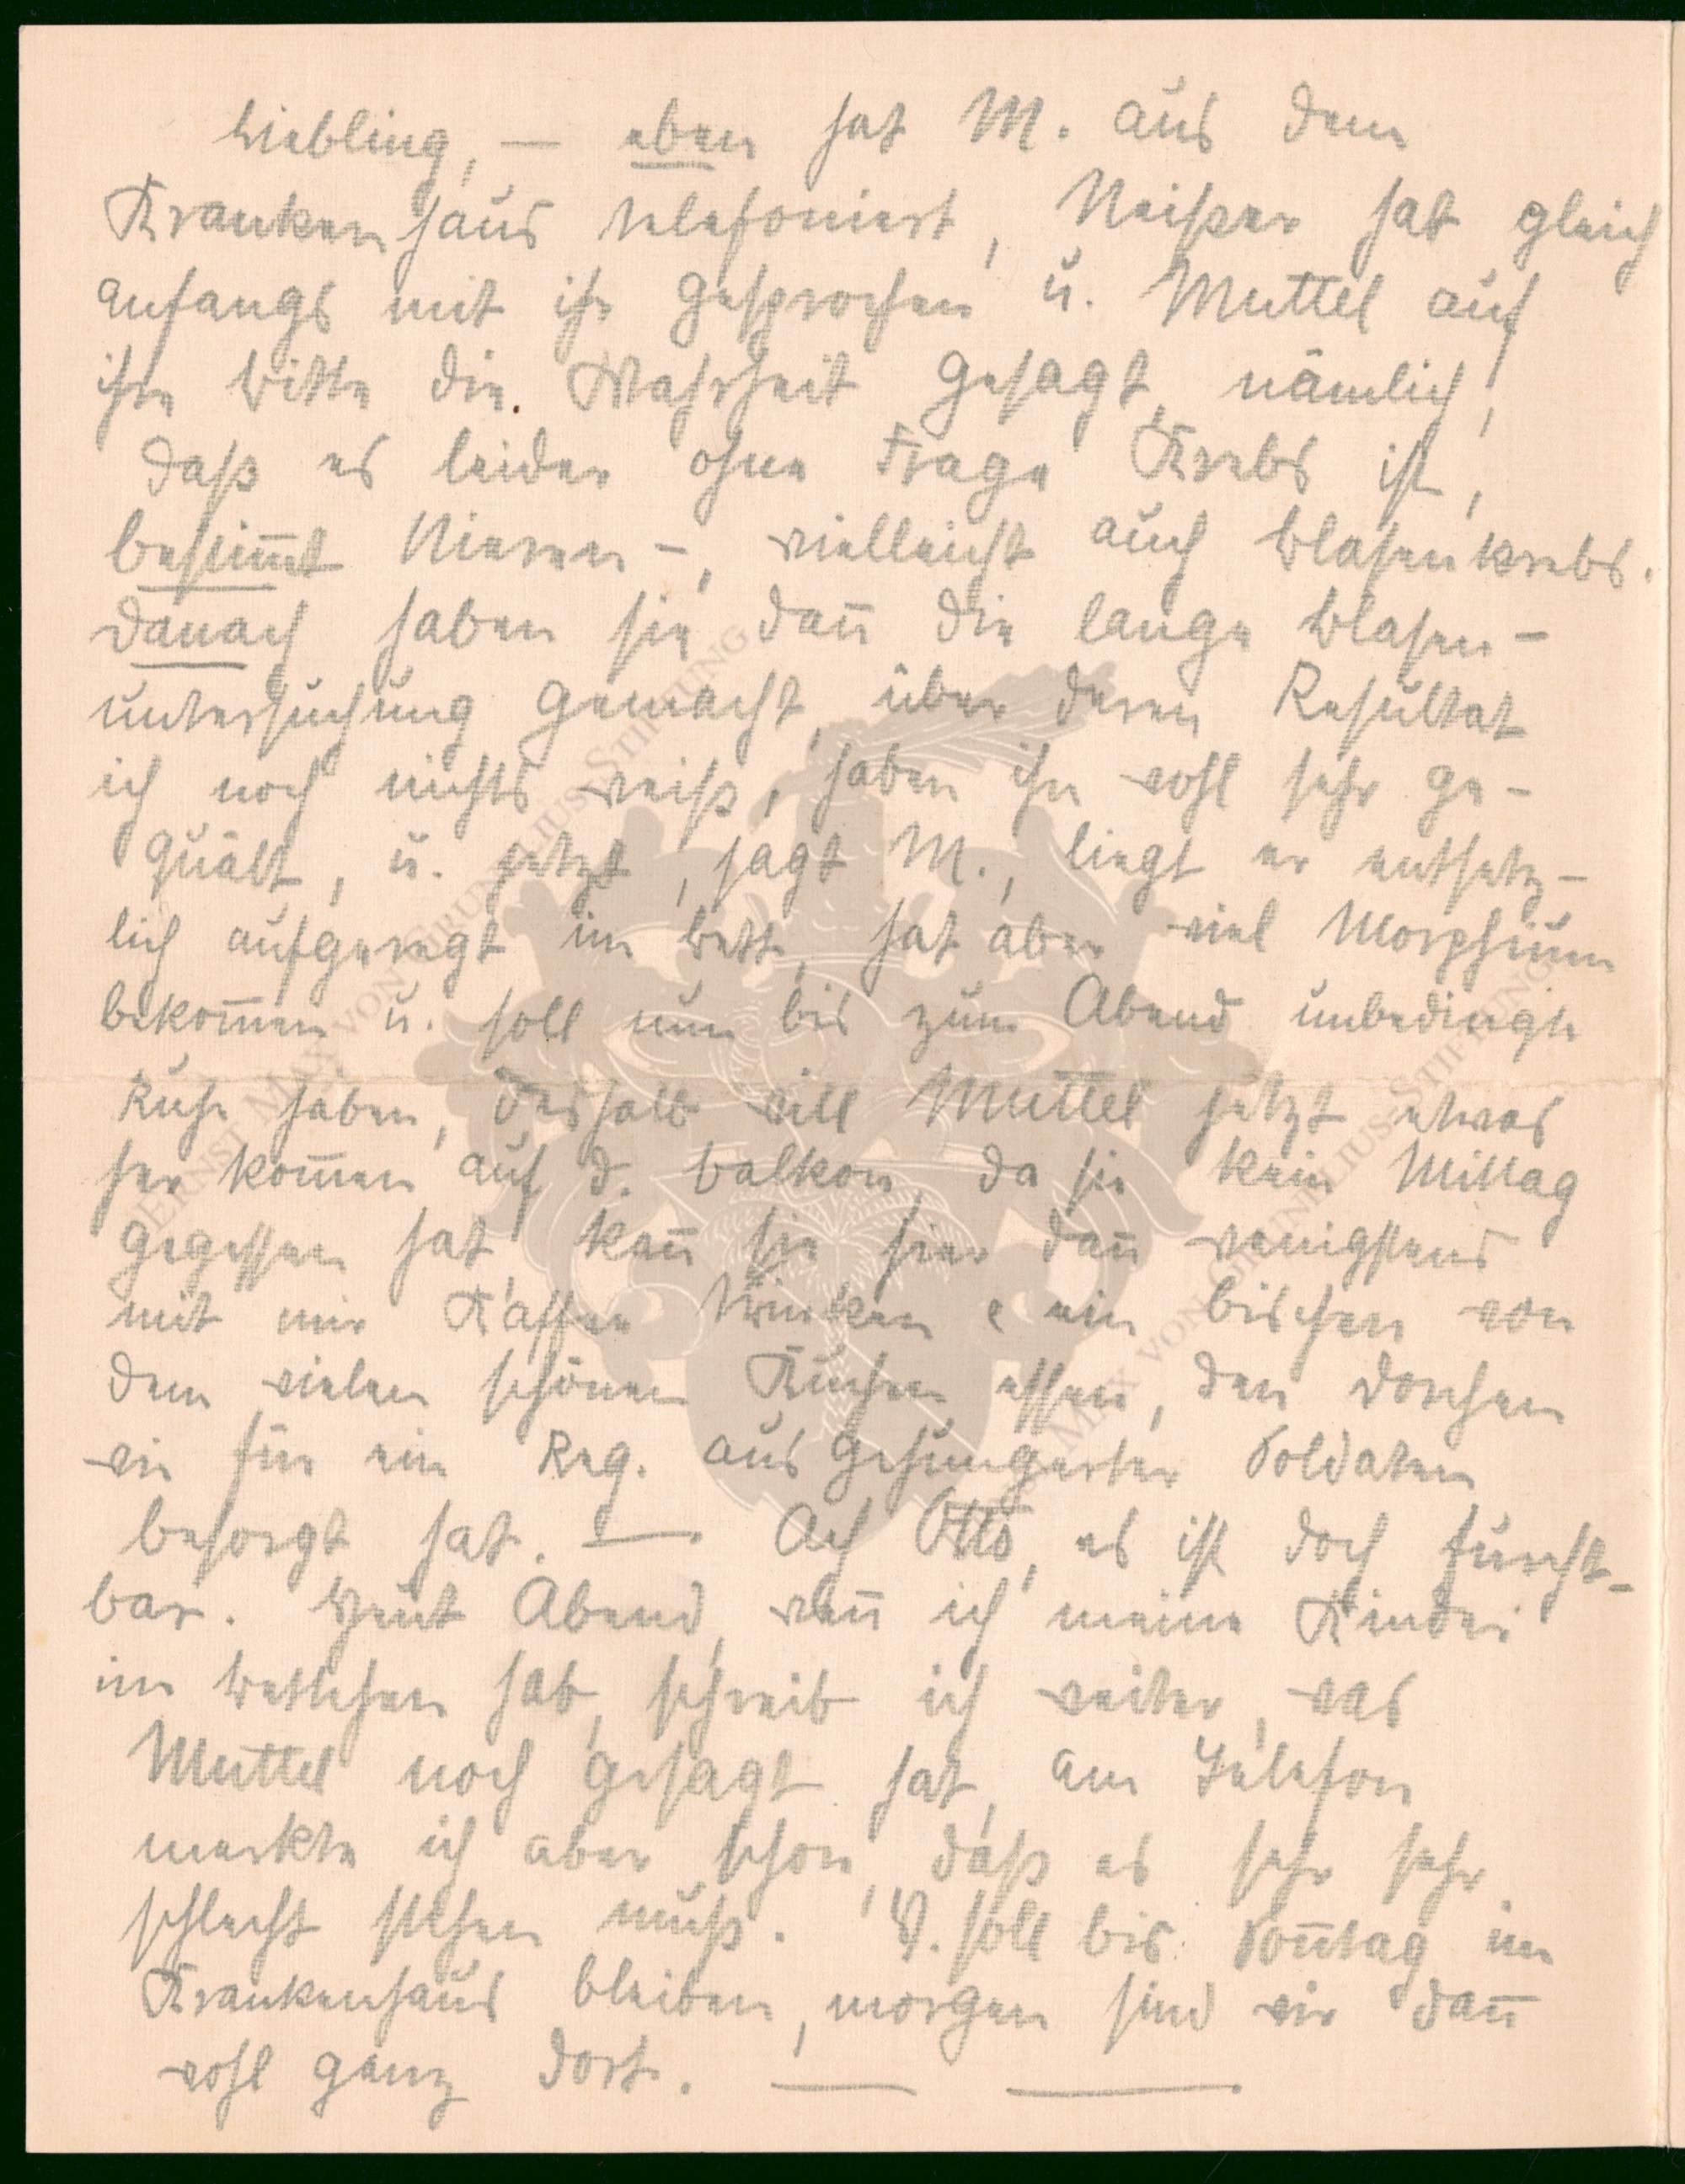 Liebling, — eben hat M. aus dem
Krankenhaus telefoniert, Neißer hat gleich
anfangs mit ihr gesprochen u. Muttel auf
ihre Bitte die Wahrheit gesagt, nämlich,
daß es leider ohne Frage Krebs ist,
bestim̄t Nieren-, vielleicht auch Blasenkrebs.
Danach haben sie dan̄ die lange Blasen-
untersuchung gemacht, über deren Resultat
ich noch nichts weiß, haben ihn wohl sehr ge-
quält, u. jetzt, sagt M., liegt er entsetz-
lich aufgeregt im Bett, hat aber viel Morphium
bekom̄en u. soll nun bis zum Abend unbedingte
Ruhe haben, deshalb will Muttel jetzt etwas
her kom̄en auf d. Balkon, da sie kein Mittag
gegessen hat, kan̄ sie hier dan̄ wenigstens
mit mir Kaffee trinken e ein bischen von
dem vielen schönen Kuchen essen, den Dorchen
wie für ein Reg. ausgehungerter Soldaten
besorgt hat. — Ach Otto, es ist doch furcht-
bar. Heut Abend, wen̄ ich meine Kinder
im Bettchen hab, schreib ich weiter, was
Muttel noch gesagt hat, am Telefon
merkte ich aber schon, daß es sehr sehr
schlecht stehen muß. V. soll bis Son̄tag im
Krankenhaus bleiben, morgen sind wir dan̄
wohl ganz dort. — —
ERNST MAX VON GRUNELIUS-STIFTUNG
ERNST MAX VON GRUNELIUS-STIFTUNG